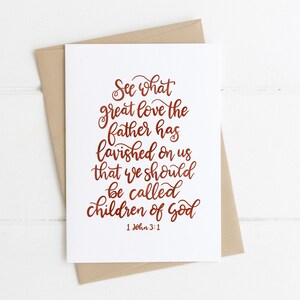 See what
great love the
father has
lavished on us
that we should
be called
children of God
1 John 3:1